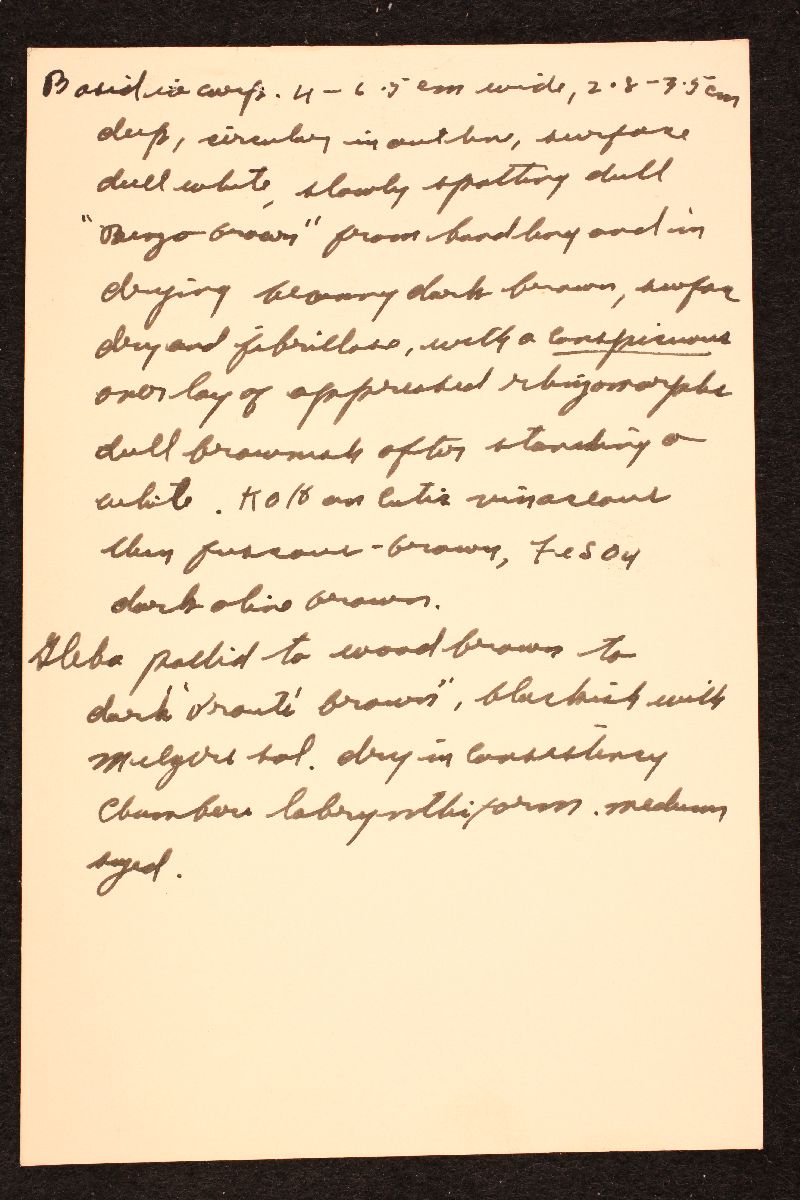 Basidiocarp. 4-6.5 cm wide, 2.8-3.5 cm
deep, circular in outline, surface
dull white, slowly spotting dull
"Benzo brown" from handling and in
drying becoming dark brown, surface
dry and fibrillose, with a conspicuous
overlay of appressed rhizomorphs
dull brownish after standing or
white. KOH on cutis vinaceous
then fuscous-brown, FeSO4
dark olive brown.
Gleba pallid to wood brown to
dark "Prouts brown", blackish with
Melzers sol. dry in consistency
Chambers labrynthiform. medium
sized.